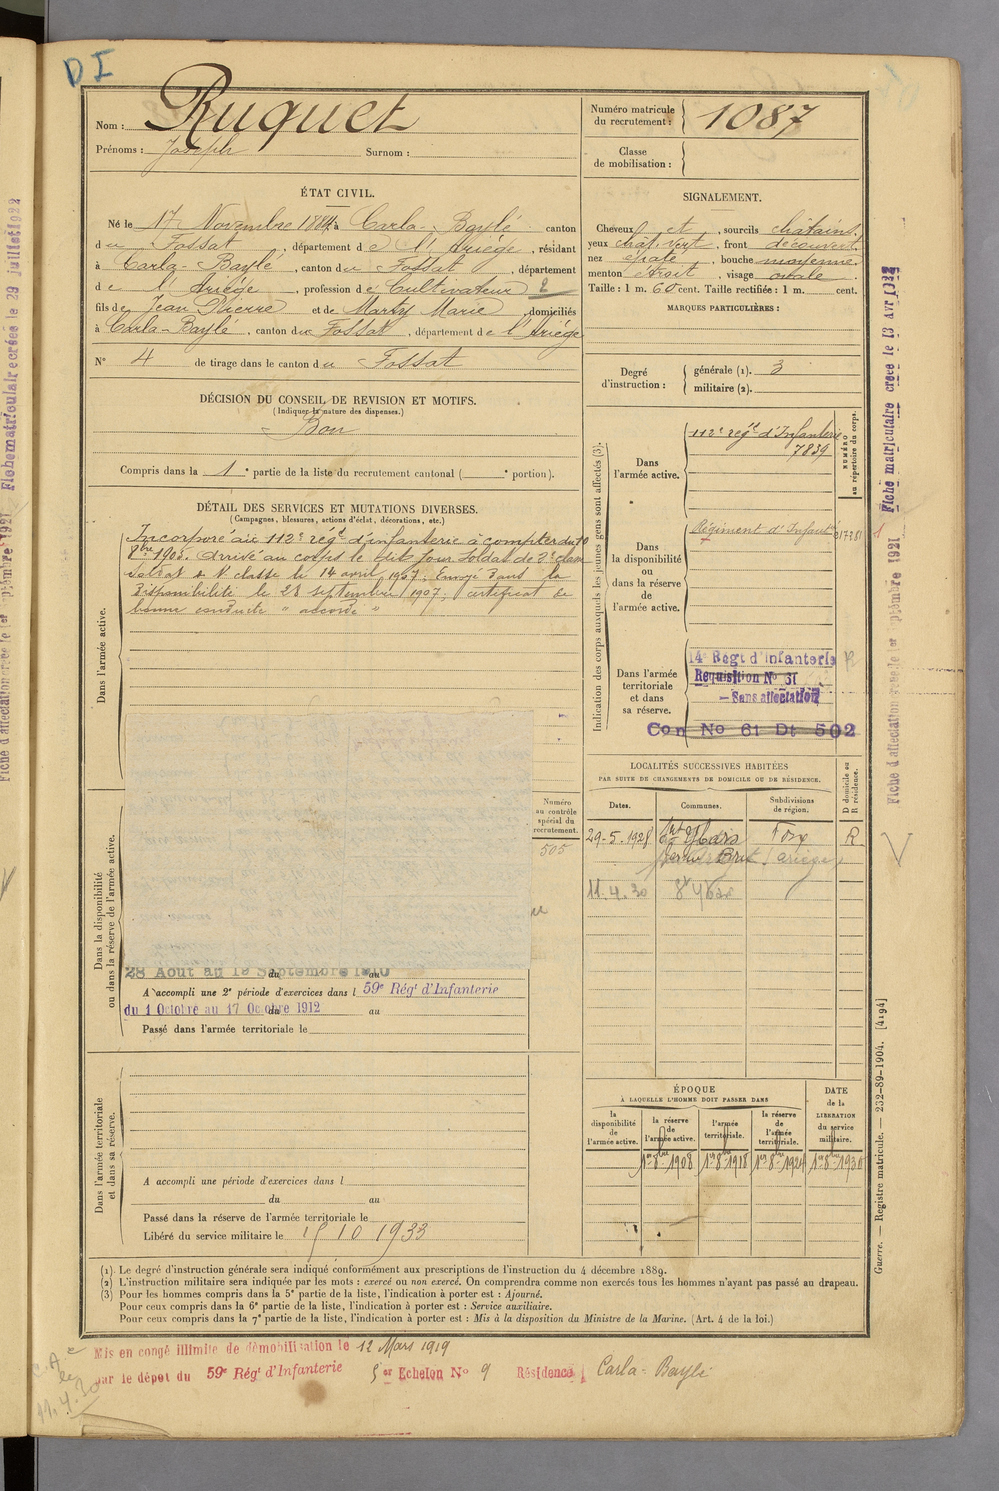 D I
Nom : Ruquet
Prénoms : Joseph Surnom :
Numéro matricule du recrutement : 1087
Classe de mobilisation :
ÉTAT CIVIL.
Né le 17 Novembre 1884 à Carla-Baylé canton
du Fossat, département de l'Ariège, résidant
à Carla-Baylé, canton du Fossat, département
de l'Ariège, profession de Cultivateur 2
fils de Jean Pierre et de Marty Marie, domiciliés
à Carla-Baylé, canton du Fossat, département de l'Ariège
N° 4 de tirage dans le canton du Fossat
DÉCISION DU CONSEIL DE REVISION ET MOTIFS.
(Indiquer la nature des dispenses.)
Bon
Compris dans la 1e partie de la liste du recrutement cantonal ( e portion).
DÉTAIL DES SERVICES ET MUTATIONS DIVERSES.
(Campagnes, blessures, actions d'éclat, décorations, etc.)
Dans l'armée active.
Incorporé au 112e régt d'infanterie à compter du 10
8bre 1905. Arrivé au corps le dit jour soldat de 2e classe
Soldat de 1e classe le 14 avril 1907. Envoyé dans la
disponibilité le 28 septembre 1907, certificat de
bonne conduite "accordé"
Dans la disponibilité ou dans la réserve de l'armée active.
Numéro au contrôle spécial du recrutement.
505
28 Aout au 19 Septembre 1910 du au
A accompli une 2e période d'exercices dans l 59e Régt d'Infanterie
du 1 Octobre au 17 Octobre 1912 du au
Passé dans l'armée territoriale le
Dans l'armée territoriale et dans sa réserve.
A accompli une période d'exercices dans l
du au
Passé dans la réserve de l'armée territoriale le
Libéré du service militaire le 15 10 1933
SIGNALEMENT.
Cheveux et, sourcils châtains
yeux chât. vert, front découvert
nez épaté, bouche moyenne
menton étroit, visage ovale
Taille : 1 m. 60 cent. Taille rectifiée : 1 m. cent.
MARQUES PARTICULIÈRES :
Degré d'instruction : générale (1). 3
militaire (2).
Indication des corps auxquels les jeunes gens sont affectés (3).
NUMÉRO au répertoire du corps.
Dans l'armée active.
112e régt d'Infanterie
7839
Dans la disponibilité ou dans la réserve de l'armée active.
Régiment d'Infantie
Dans l'armée territoriale et dans sa réserve.
14e Regt d'infanterie R
Requisition N° 61
— Sans affectation
Con No 61 Dt 502
LOCALITÉS SUCCESSIVES HABITÉES
PAR SUITE DE CHANGEMENTS DE DOMICILE OU DE RÉSIDENCE.
Dates. Communes. Subdivisions de région. D domicile ou R résidence.
29-5-1928 Foix R
(ariège)
11.4.30
ÉPOQUE
À LAQUELLE L'HOMME DOIT PASSER DANS
la disponibilité de l'armée active. la réserve de l'armée active. l'armée territoriale. la réserve de l'armée territoriale. DATE de la LIBÉRATION du service militaire.
1er 8bre 1908 1er 8bre 1918 1er 8bre 1924 1er 8bre 1930
(1). Le degré d'instruction générale sera indiqué conformément aux prescriptions de l'instruction du 4 décembre 1889.
(2) L'instruction militaire sera indiquée par les mots : exercé ou non exercé. On comprendra comme non exercés tous les hommes n'ayant pas passé au drapeau.
(3) Pour les hommes compris dans la 5e partie de la liste, l'indication à porter est : Ajourné.
Pour ceux compris dans la 6e partie de la liste, l'indication à porter est : Service auxiliaire.
Pour ceux compris dans la 7e partie de la liste, l'indication à porter est : Mis à la disposition du Ministre de la Marine. (Art. 4 de la loi.)
Mis en congé illimité de démobilisation le 12 Mars 1919
par le dépôt du 59e Régt d'Infanterie 5 er Echelon No 9 Résidence Carla-Baylé
11.4.30
Guerre. — Registre matricule. — 232-89-1904. [4194]
Fiche matriculaire créée le 13 Avr 1927
Fiche d'affectation créée le 1er septembre 1921
Fiche matriculaire créée le 29 juillet 1922
Fiche d'affectation créée le 1er septembre 1921